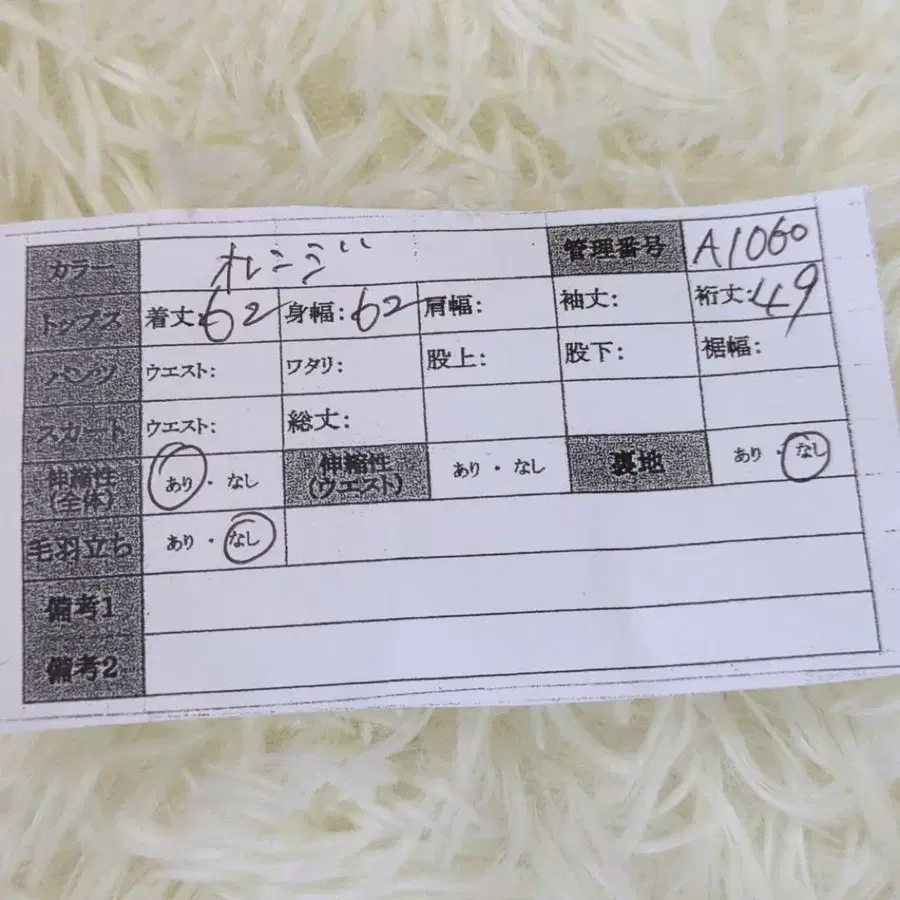 カラー オレンジ 管理番号 A1060
トップス 着丈:62 身幅:62 肩幅: 袖丈: 裄丈:49
パンツ ウエスト: ワタリ: 股上: 股下: 裾幅:
スカート ウエスト: 総丈:
伸縮性(全体) あり・なし 伸縮性(ウエスト) あり・なし 裏地 あり・なし
毛羽立ち あり・なし
備考1
備考2